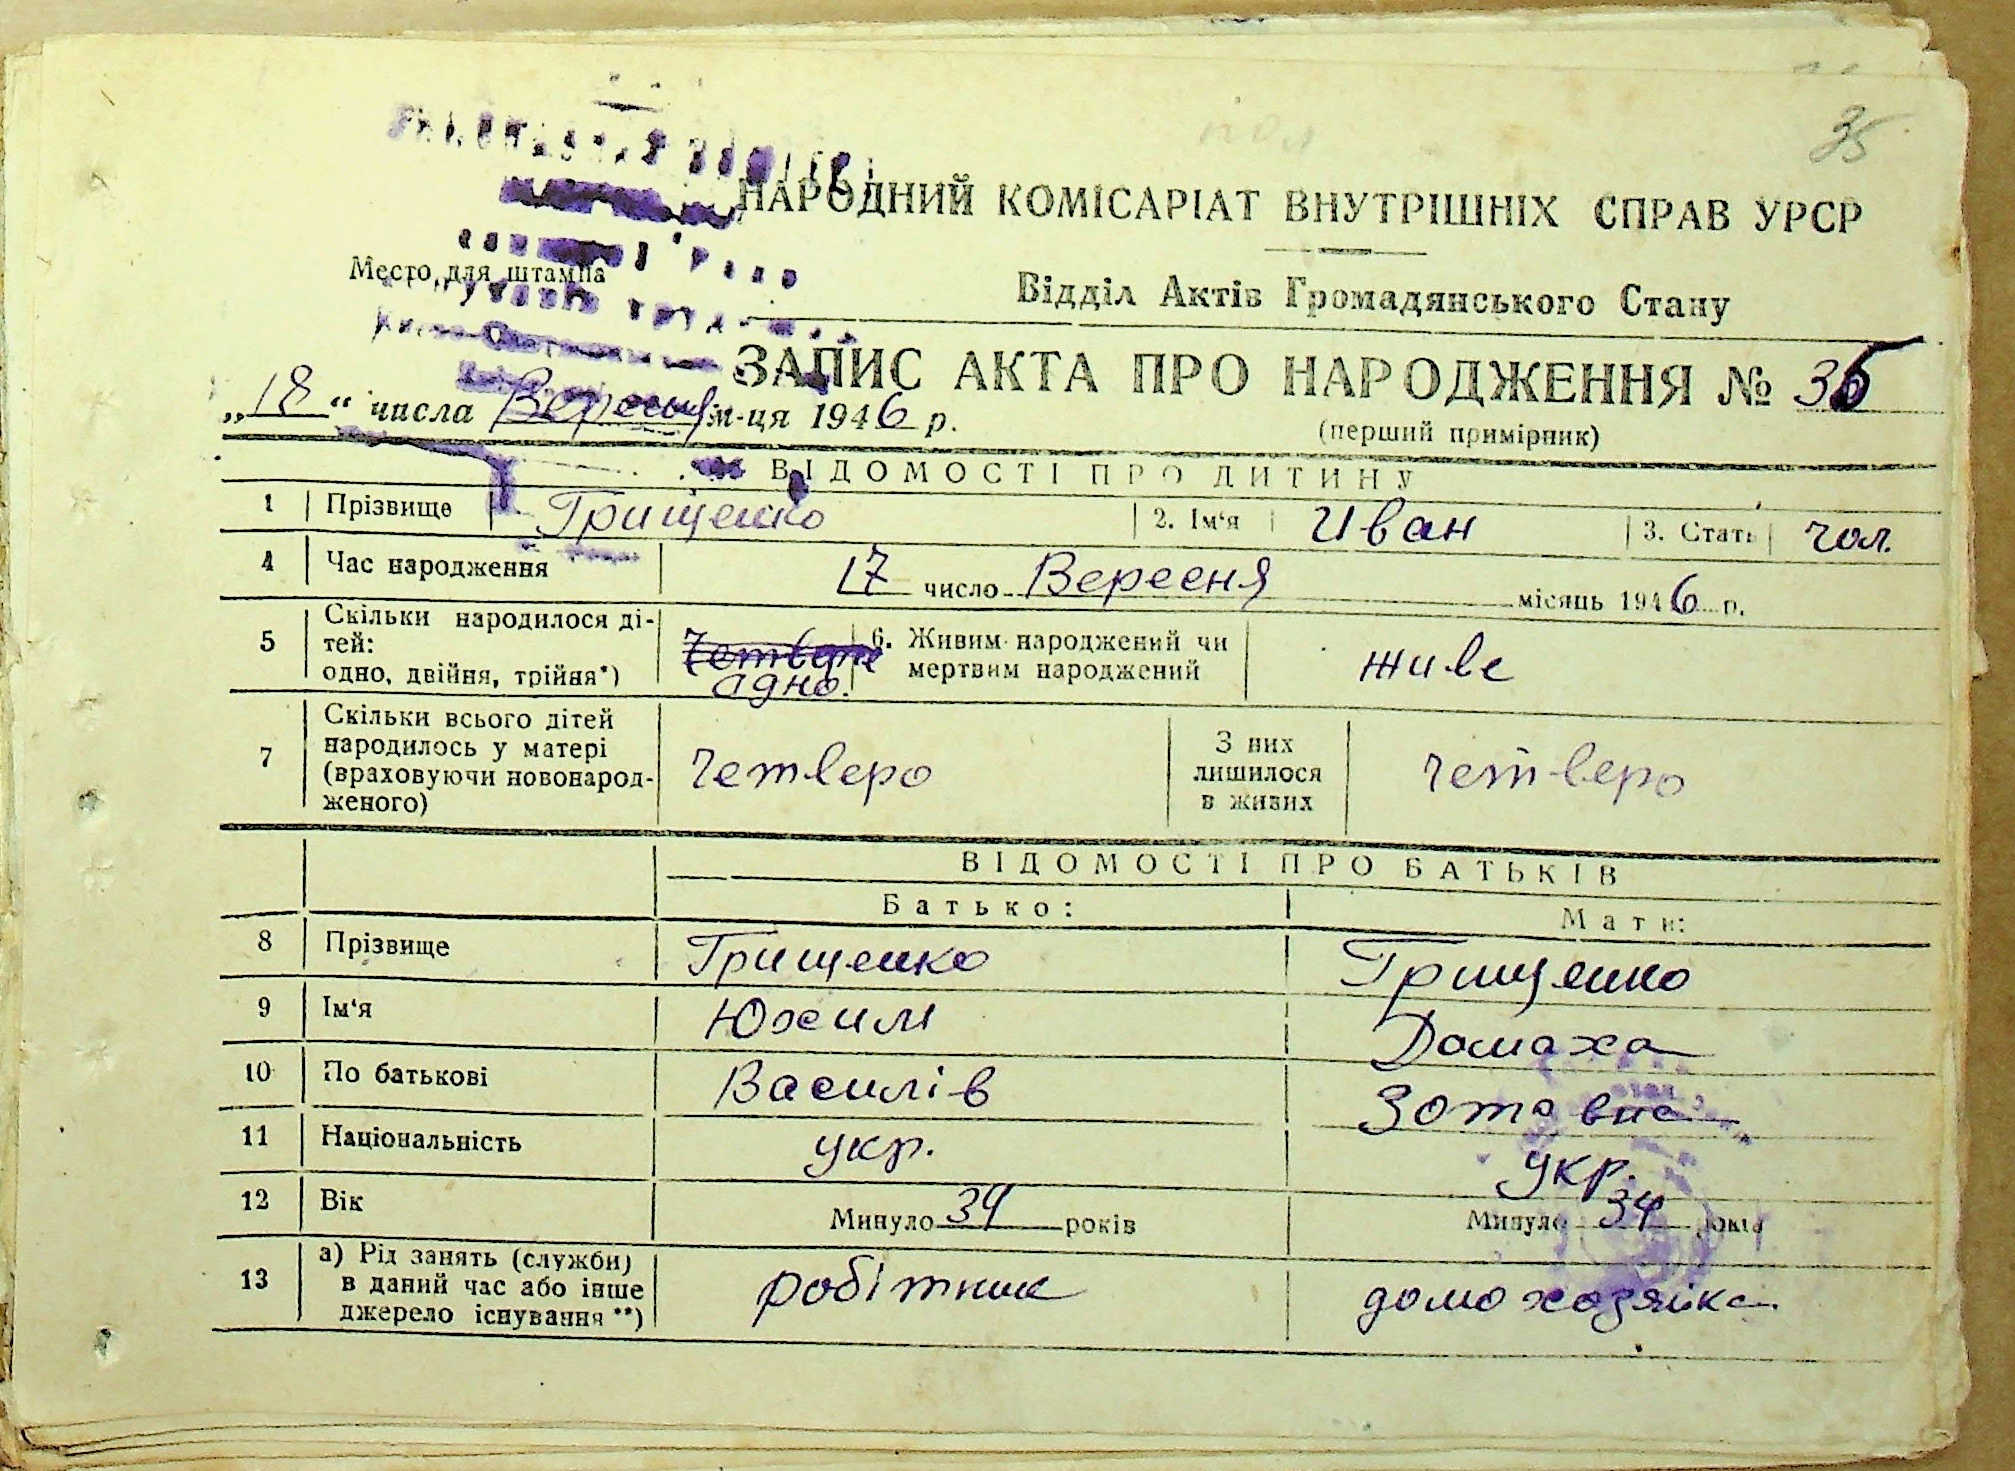 35
НАРОДНИЙ КОМІСАРІАТ ВНУТРІШНІХ СПРАВ УРСР
Место для штампа
Відділ Актів Громадянського Стану
ЗАПИС АКТА ПРО НАРОДЖЕННЯ №
„18“ числа Вересня м-ця 1946 р.
(перший примірник)
ВІДОМОСТІ ПРО ДИТИНУ
1 Прізвище Грищенко 2. Ім'я Иван 3. Стать чол.
4 Час народження 17 число Вересня місяць 1946 р.
5 Скільки народилося ді-
тей:
одно, двійня, трійня*)
адно.
6. Живим народжений чи
мертвим народжений
живе
7 Скільки всього дітей
народилось у матері
(враховуючи новонарод-
женого)
четверо
З них
лишилося
в живих
четверо
ВІДОМОСТІ ПРО БАТЬКІВ
Батько: Мати:
8 Прізвище Грищенко Грищенко
9 Ім'я Юхим Домаха
10 По батькові Василів Зотовна
11 Національність укр. укр.
12 Вік Минуло 34 років Минуло 34 років
13 а) Рід занять (служби)
в даний час або інше
джерело існування **)
робітник домохозяйка